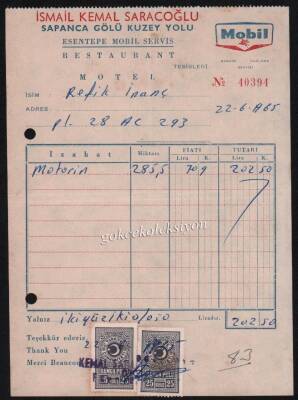 İSMAİL KEMAL SARACOĞLU
SAPANCA GÖLÜ KUZEY YOLU
ESENTEPE MOBİL SERVİS
RESTAURANT
MOTEL
TESİSLERİ
Mobil
№ 40394
İSİM Refik İnanç
ADRES 22-6-965
pl. 28 AC 293
İzahat Miktarı FİATI TUTARI
Lira K. Lira K.
Motorin 285,5 70,9 202 50
gökçekoleksiyon
Yalnız ikiyüzikio/050 Liradır. 202 50
Teşekkür ederiz
Thank You
Merci Beaucoup
KEMAL
5
25
83